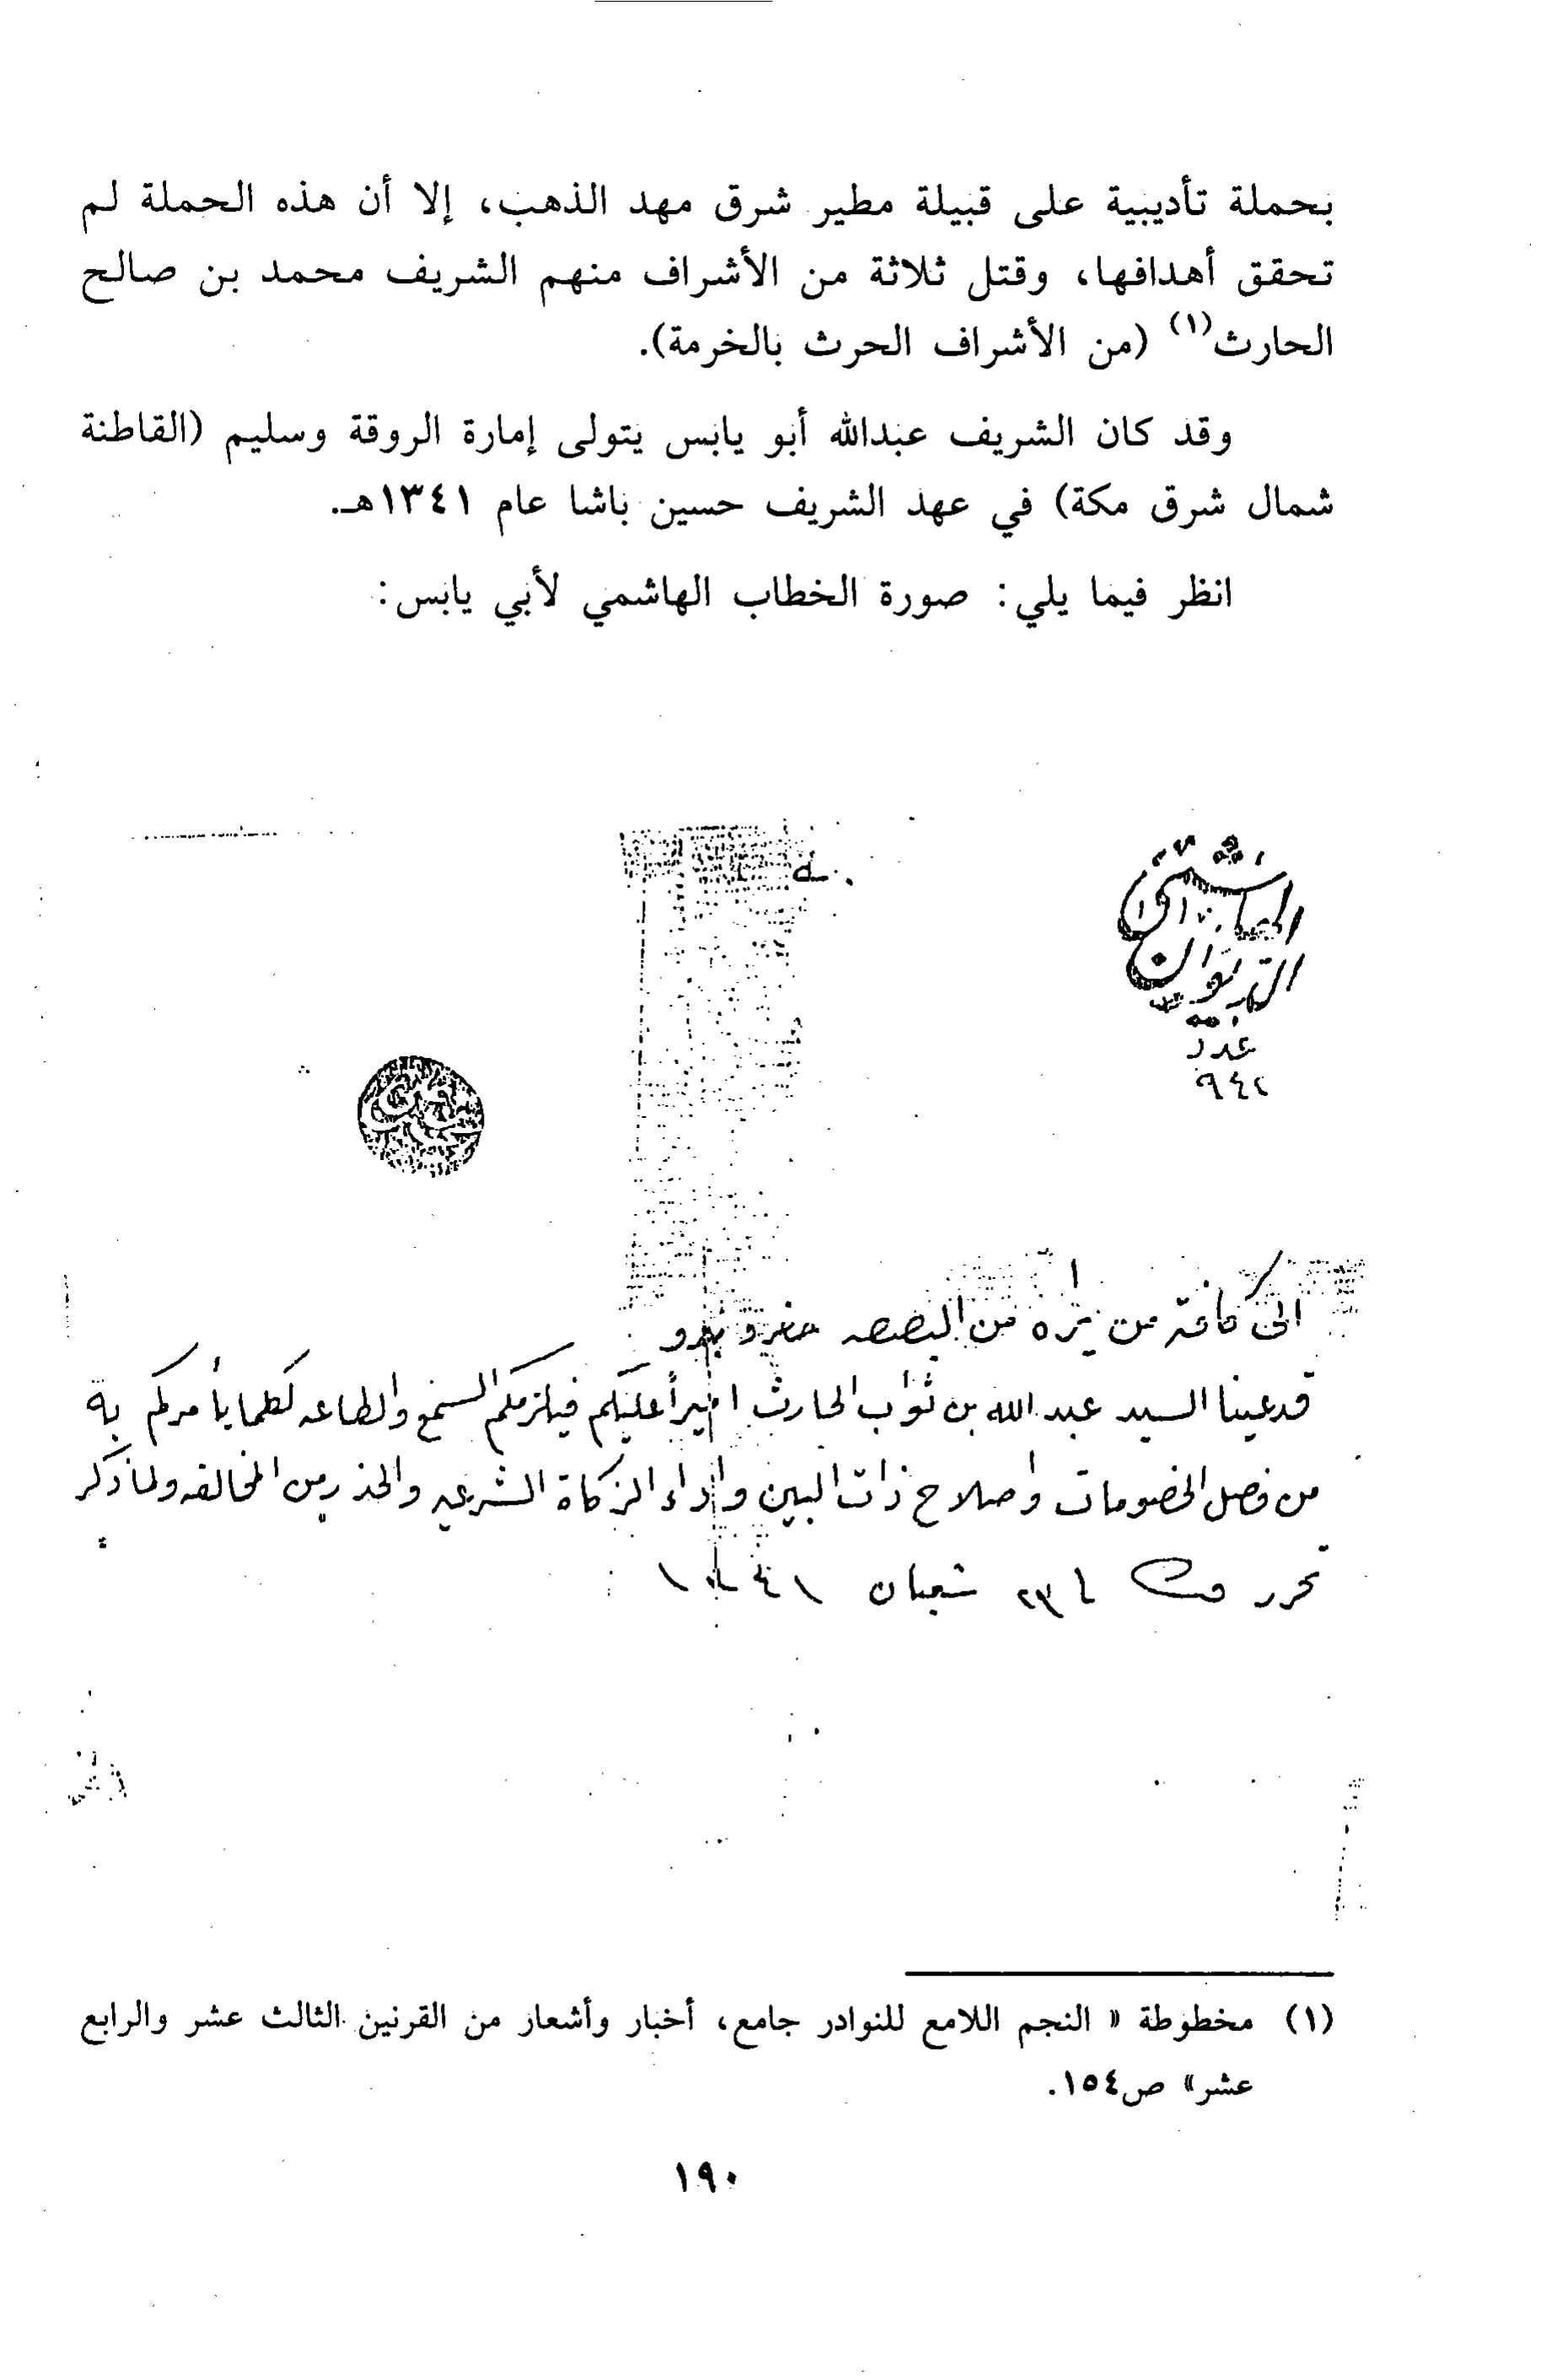 بحملة تأديبية على قبيلة مطير شرق مهد الذهب، إلا أن هذه الحملة لم
تحقق أهدافها، وقتل ثلاثة من الأشراف منهم الشريف محمد بن صالح
الحارث(١) (من الأشراف الحرث بالخرمة).
وقد كان الشريف عبدالله أبو يابس يتولى إمارة الروقة وسليم (القاطنة
شمال شرق مكة) في عهد الشريف حسين باشا عام ١٣٤١هـ.
انظر فيما يلي: صورة الخطاب الهاشمي لأبي يابس:
الديوان الهاشمي
عدد
٩٤٢
الى كافة من يراه من
قد عينا السيد عبد الله بن ثواب الحارث اميراً عليكم فيلزمكم السمع والطاعه لكلما يأمركم به
من فصل الخصومات واصلاح ذات البين واداء الزكاة الشرعيه والحذر من المخالفه ولما ذكر
تحرر شعبان ١٣٤١
(١) مخطوطة « النجم اللامع للنوادر جامع، أخبار وأشعار من القرنين الثالث عشر والرابع
عشر» ص١٥٤.
١٩٠